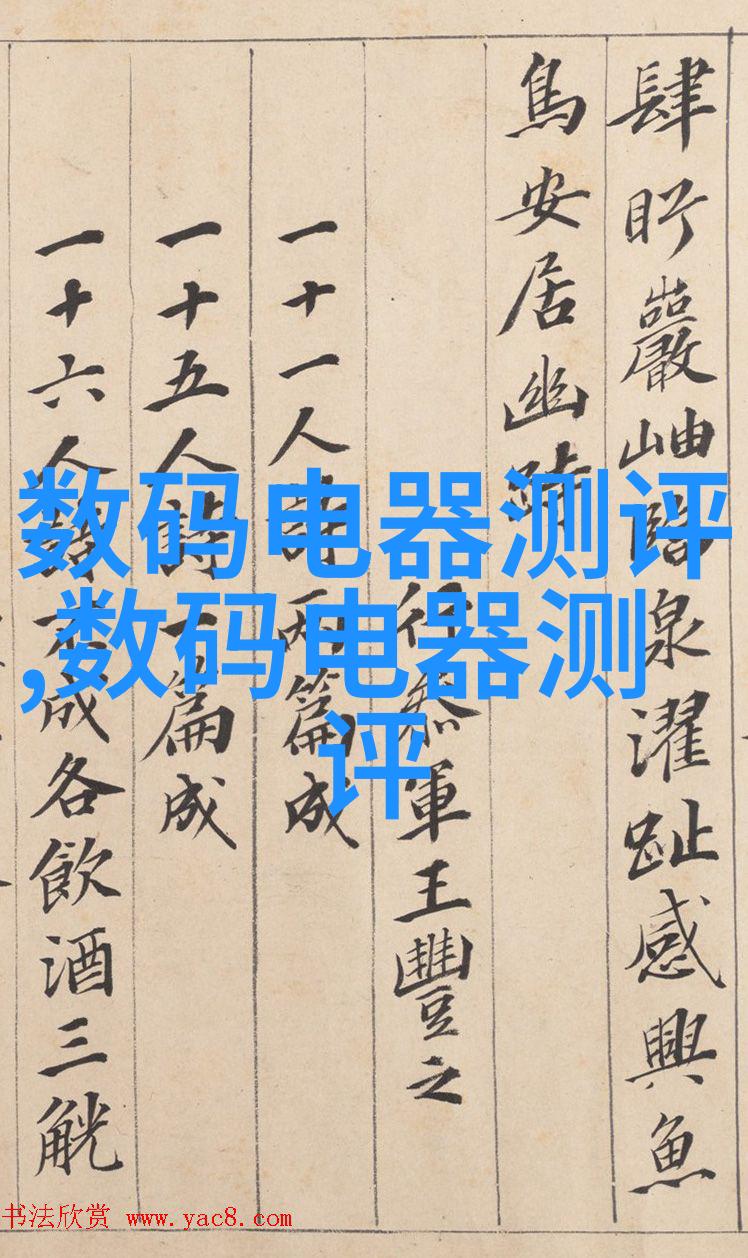 肆眄巖岫臨泉濯趾感興魚
鳥安居幽峙
行叅軍王豐之
一十一人詩兩篇成
一十五人詩一篇成
一十六人詩不成各飲酒三觥
数码电器测评
,数码电器测
评
书法欣赏 www.yac8.com